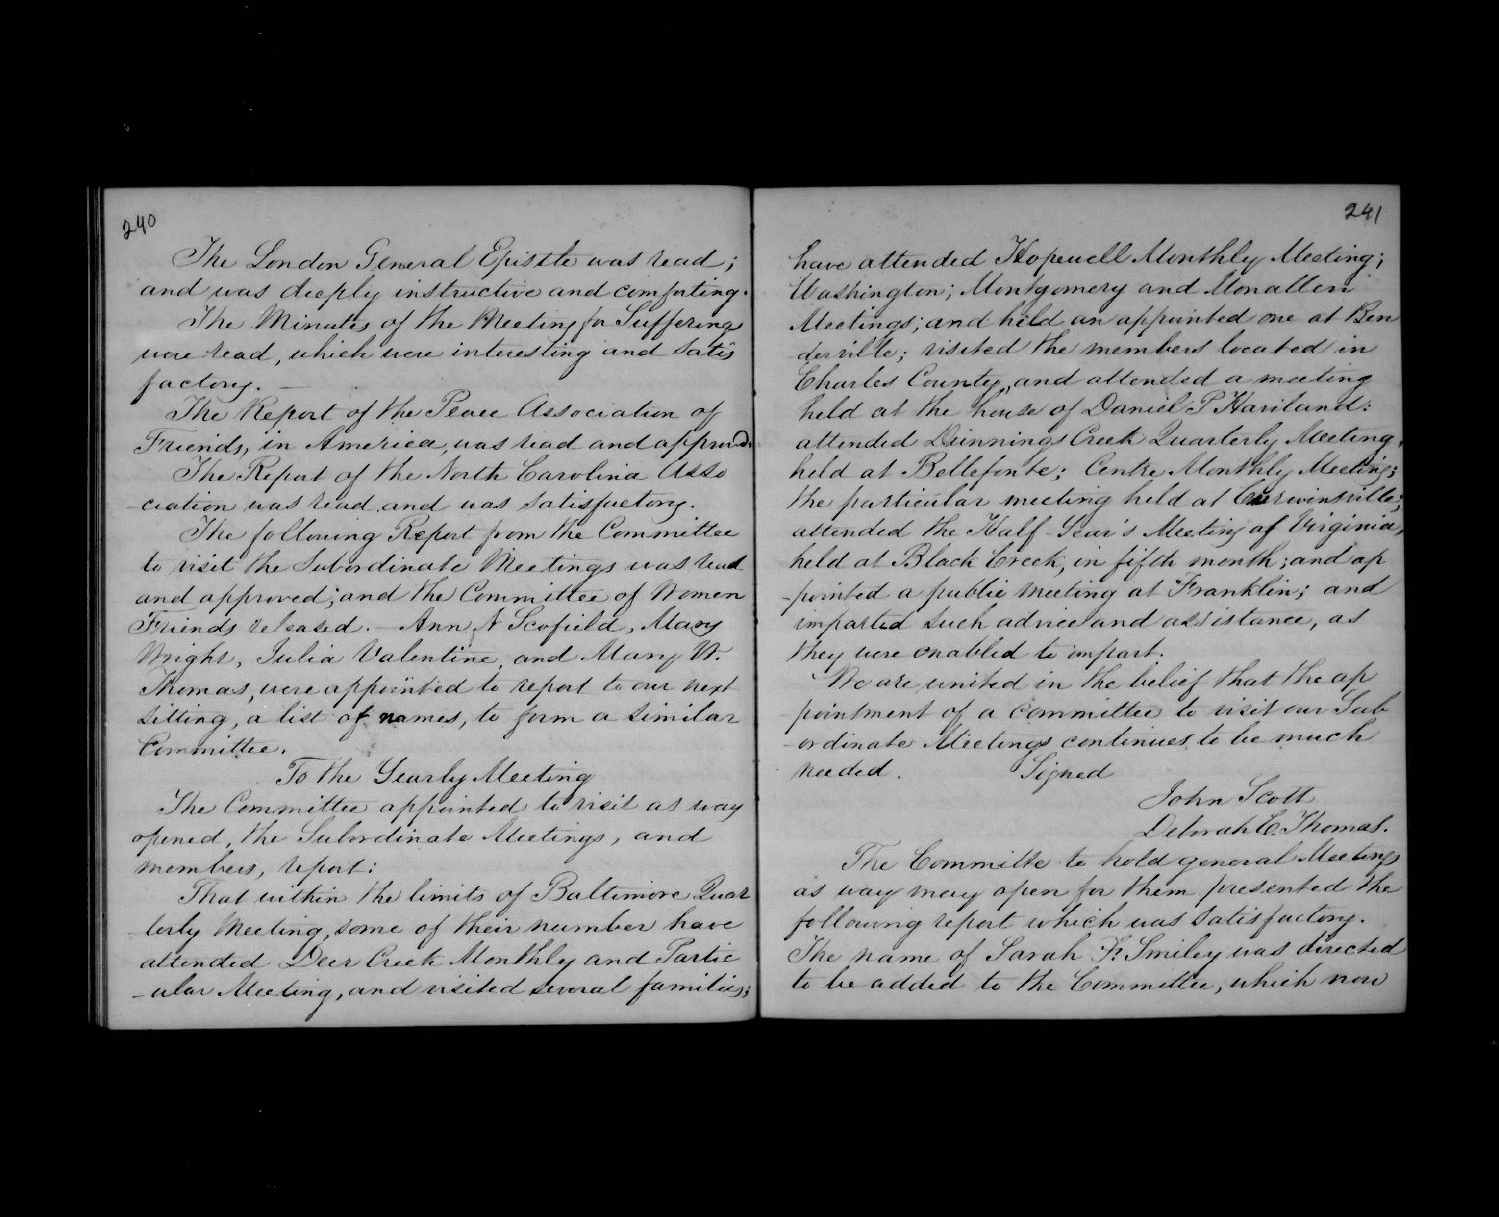 240
The London General Epistle was read;
and was deeply instructive and comforting.
The Minutes of the Meeting for Sufferings
were read, which were interesting and satis
factory. —
The Report of the Peace Association of
Friends, in America, was read and approved.
The Report of the North Carolina Asso
ciation was read and was satisfactory.
The following Report from the Committee
to visit the Subordinate Meetings was read
and approved; and the Committee of Women
Friends released. — Ann N Scofield, Mary
Wright, Julia Valentine, and Mary W.
Thomas, were appointed to report to our next
sitting, a list of names, to form a similar
Committee.
To the Yearly Meeting
The Committee appointed to visit as way
opened, the Subordinate Meetings, and
members, report:
That within the limits of Baltimore Quar
terly Meeting, some of their number have
attended Deer Creek Monthly and Partic
-ular Meeting, and visited several families;
241
have attended Hopewell Monthly Meeting;
Washington; Montgomery and Monallen
Meetings; and held an appointed one at Ben
derville; visited the members located in
Charles County, and attended a meeting
held at the house of Daniel P Haviland:
attended Dunnings Creek Quarterly Meeting,
held at Bellefonte; Centre Monthly Meeting;
the particular meeting held at Curwinsville;
attended the Half-Year's Meeting of Virginia,
held at Black Creek, in fifth month; and ap
-pointed a public meeting at Franklin; and
imparted such advice and assistance, as
they were enabled to impart.
We are united in the belief that the ap
pointment of a committee to visit our Sub
-ordinate Meetings continues to be much
needed. Signed
John Scott
Deborah C. Thomas.
The Committe to hold general Meetings
as way may open for them presented the
following report which was satisfactory.
The name of Sarah F. Smiley was directed
to be added to the Committee, which now